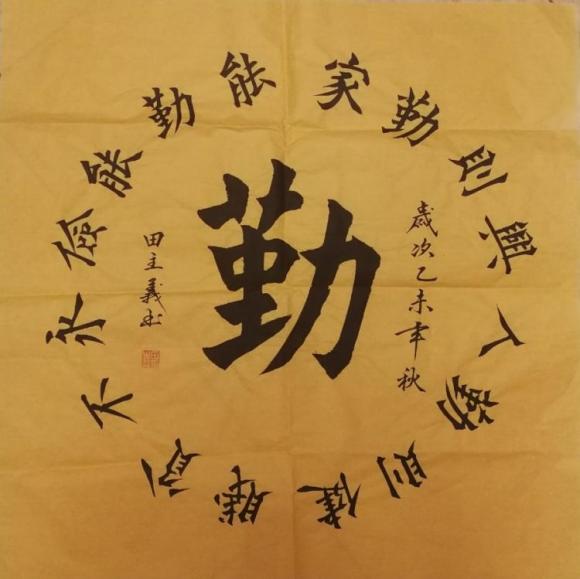 勤
家勤則興人勤則健
能勤能儉永不貧賤
歲次乙未年秋
田主義书